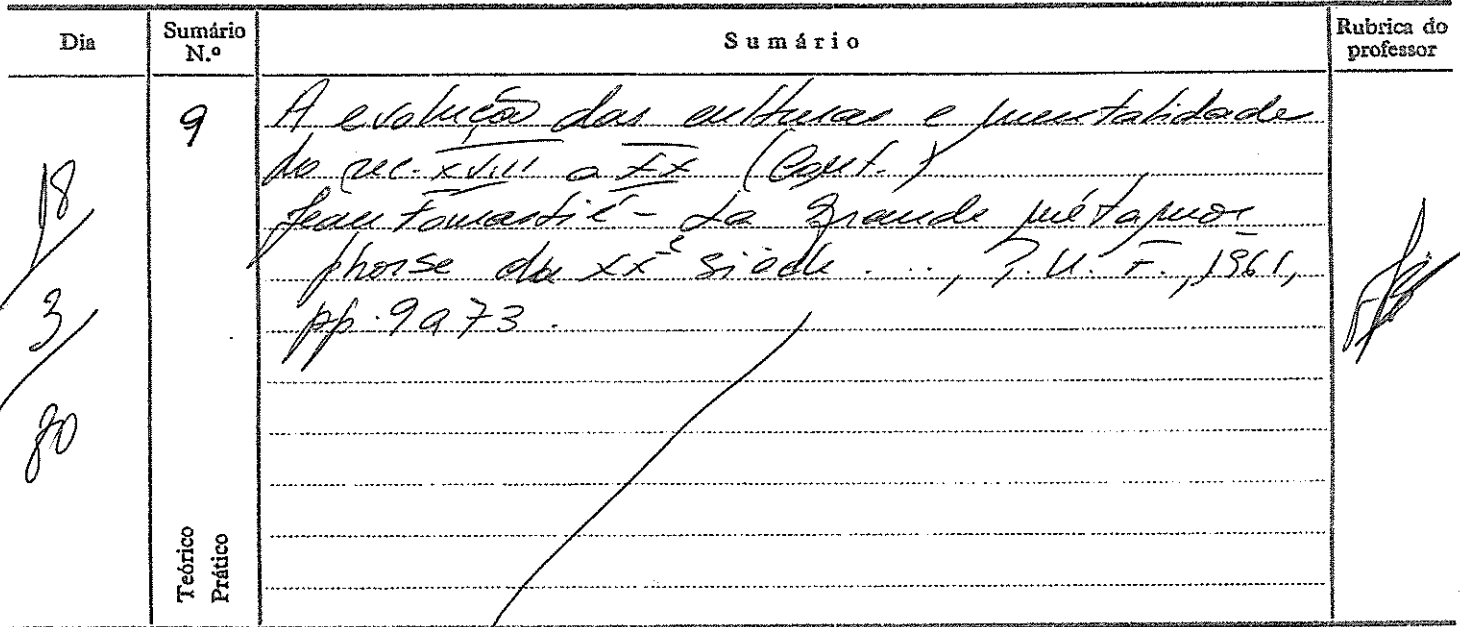 Dia
Sumário N.º
Sumário
Rubrica do professor
18/3/80
9
A evolução das culturas e mentalidade
do sec. XVIII a XX (Cont.)
Jean Fourastié - La Grande métamor
phose du XXe siècle ..., P.U.F., 1961,
pp. 9 a 73.
Teórico
Prático